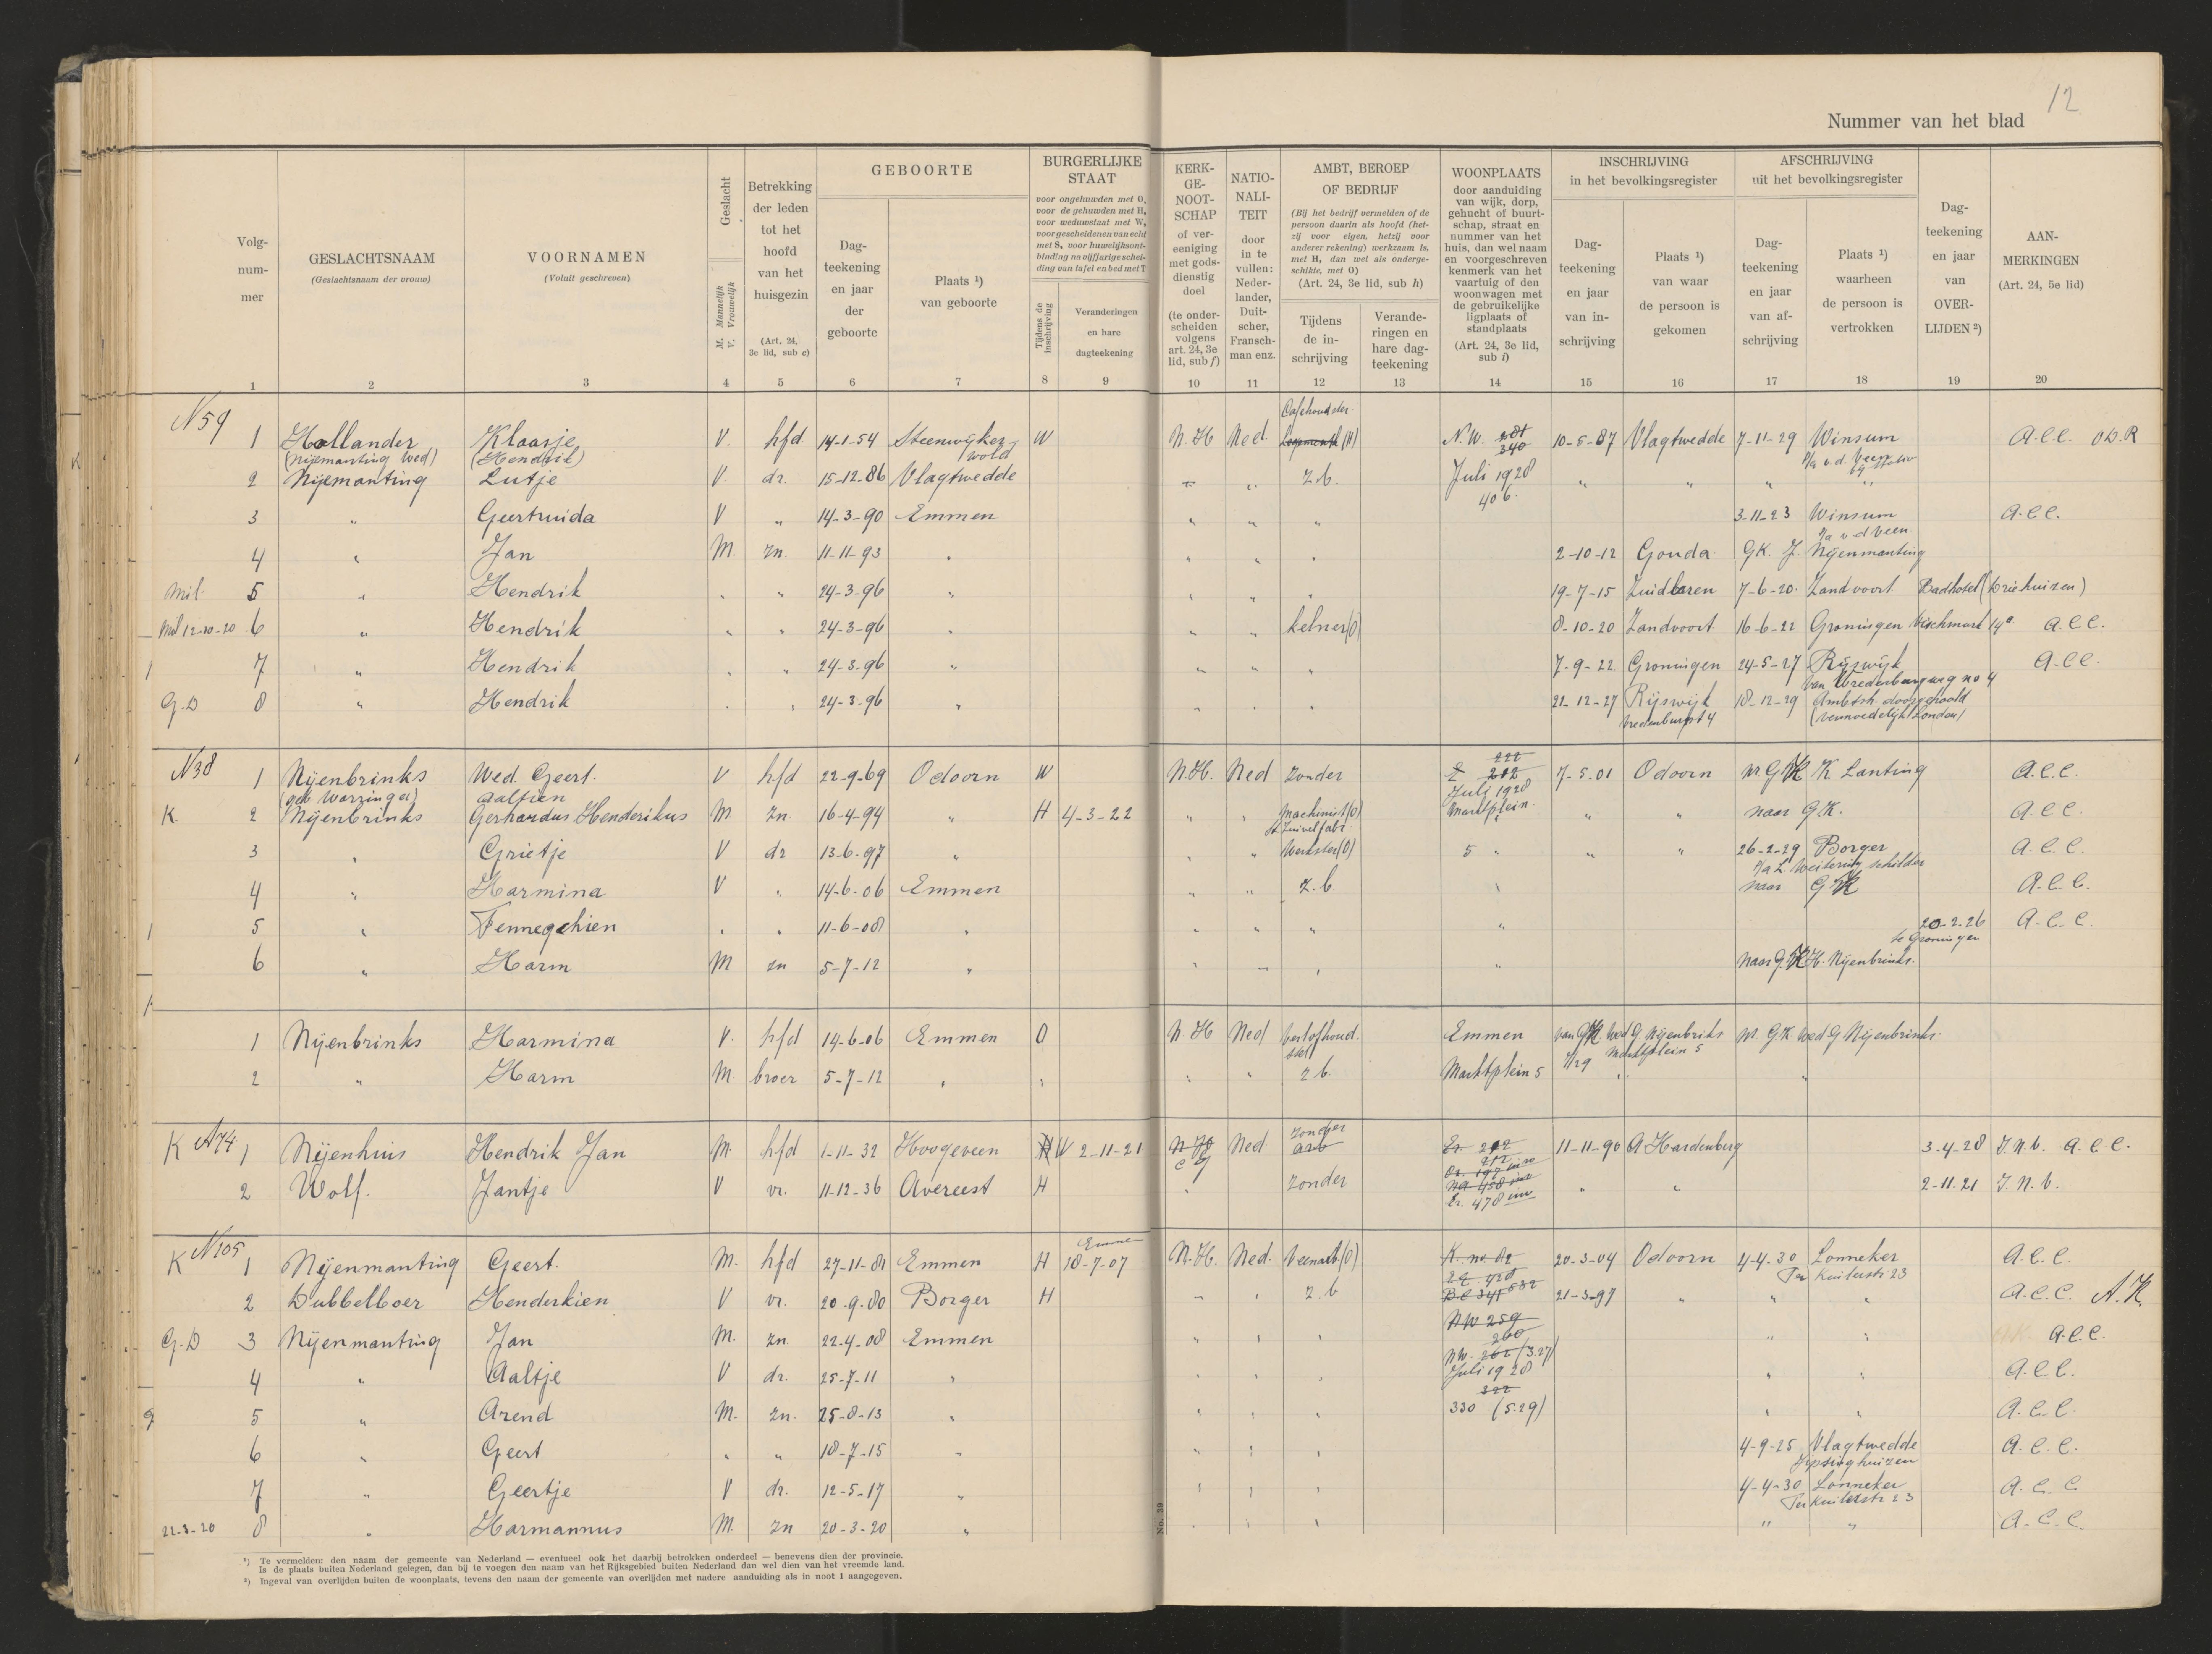 12
Nummer van het blad
Volgnummer
GESLACHTSNAAM
(Geslachtsnaam der vrouw)
VOORNAMEN
(Voluit geschreven)
Geslacht
M. Mannelijk
V. Vrouwelijk
Betrekking der leden tot het hoofd van het huisgezin
(Art. 24, 3e lid, sub c)
GEBOORTE
Dagteekening en jaar der geboorte
Plaats ¹) van geboorte
BURGERLIJKE STAAT
voor ongehuwden met O,
voor de gehuwden met H,
voor weduwstaat met W,
voor gescheidenen van echt
met S, voor huwelijksont-
binding na vijfjarige schei-
ding van tafel en bed met T
Tijdens de inschrijving
Veranderingen en hare dagteekening
KERK-GE-NOOT-SCHAP
of vereeniging met godsdienstig doel
(te onderscheiden volgens art. 24, 3e lid, sub f)
NATIO-NALI-TEIT
door in te vullen: Nederlander, Duitscher, Franschman enz.
AMBT, BEROEP OF BEDRIJF
(Bij het bedrijf vermelden of de
persoon daarin als hoofd (het-
zij voor eigen, hetzij voor
anderer rekening) werkzaam is,
met H, dan wel als onderge-
schikte, met O)
(Art. 24, 3e lid, sub h)
Tijdens de inschrijving
Veranderingen en hare dagteekening
WOONPLAATS
door aanduiding
van wijk, dorp,
gehucht of buurt-
schap, straat en
nummer van het
huis, dan wel naam
en voorgeschreven
kenmerk van het
vaartuig of den
woonwagen met
de gebruikelijke
ligplaats of
standplaats
(Art. 24, 3e lid,
sub i)
INSCHRIJVING
in het bevolkingsregister
Dagteekening en jaar van inschrijving
Plaats ¹) van waar de persoon is gekomen
AFSCHRIJVING
uit het bevolkingsregister
Dagteekening en jaar van afschrijving
Plaats ¹) waarheen de persoon is vertrokken
Dagteekening en jaar van OVERLIJDEN ²)
AANMERKINGEN
(Art. 24, 5e lid)
1 2 3 4 5 6 7 8 9 10 11 12 13 14 15 16 17 18 19 20
N59 1 Hollander Klaasje V. hfd 14-1-54 Steenwijkerwold W N.H Ned. (H) N.W. 281 340 10-5-87 Vlagtwedde 7-11-29 Winsum A.C.C. O.D.R
(Nijemanting Wed) (Hendrik)
2 Nijemanting Lutje V. dr. 15-12-86 Vlagtwedde " " z.b. Juli 1928 406. " " " "
3 " Geertruida V " 14-3-90 Emmen " " " 3-11-23 Winsum A.C.C.
p/a v.d Veen
4 " Jan M. zn. 11-11-93 " " " " 2-10-12 Gouda GK. J. Nijenmanting
Mil. 5 " Hendrik " " 24-3-96 " " " " 19-7-15 Zuidlaren 7-6-20. Zandvoort Badhotel (Driehuizen)
Mil 12-10-20 6 " Hendrik " " 24-3-96 " " " kelner (O) 8-10-20 Zandvoort 16-6-22 Groningen Vischmarkt 14a A.C.C.
7 " Hendrik " " 24-3-96 " " " " 7-9-22 Groningen 24-5-27 Rijswijk A.C.C.
van Vredenburgweg no 4
G.D 8 " Hendrik " " 24-3-96 " " " " 21-12-27 Rijswijk 18-12-29 Ambtsh. doorgehaald
Vredenburgst 4 (vermoedelijk London)
N38 1 Nijenbrinks Wed. Geert. V hfd 22-9-69 Odoorn W N.H. Ned zonder 222 212 7-5-01 Odoorn nr. GK K Lanting A.C.C.
(geb Warringa) Aaltien Juli 1928
K. 2 Nijenbrinks Gerhardus Henderikus M. zn. 16-4-94 " H 4-3-22 " " Machinist (O) Marktplein. " " naar G.K. A.C.C.
Zuivelfabr.
3 " Grietje V dr 13-6-97 " " " Werkster (O) 5 " " " 26-2-29 Borger A.C.C.
p/a L. Weitering schilder
4 " Harmina V " 14-6-06 Emmen " " z.b. naar GK A.C.C.
5 " Fennegchien " " 11-6-08 " " " " " 20-2-26 A.C.C.
te Groningen
6 " Harm M zn 5-7-12 " " " " " naar G.K H. Nijenbrinks.
1 Nijenbrinks Harmina V. hfd 14-6-06 Emmen O N.H Ned verlofhoud. Emmen van GK Wed G Nijenbriks nr. G.K Wed G Nijenbrinks.
ster 7/29 Marktplein 5
2 " Harm M. broer 5-7-12 " " " " z b. Marktplein 5 " "
K A74 1 Nijenhuis Hendrik Jan M. hfd 1-11-32 Hoogeveen H W 2-11-21 N H Ned zonder arb Er. 212 11-11-90 A Hardenberg 3-4-28 I.n.b. A.C.C.
2 Wolf. Jantje V vr. 11-12-36 Avereest H " zonder Er. 478 " " 2-11.21 I.N.b.
Emmen
K N105 1 Nijenmanting Geert. M. hfd 27-11-81 Emmen H 18-7-07 N.H. Ned. Veenarb (O) K. no 82 20-3-04 Odoorn 4-4-30 Lonneker A.C.C.
Ter Kuilestr 23
2 Dubbelboer Henderkien V vr. 20.9.80 Borger H " " z.b 532 21-3-97 " " " A.C.C. A.K.
G.D 3 Nijenmanting Jan M. zn. 22-4-08 Emmen " " " NW 259 260 " " A.C.C.
NW. 262 (3.27)
4 " Aaltje V dr. 25-7-11 " " " " Juli 1928 " " A.C.C.
322
5 " Arend M. zn. 25-8-13 " " " " 330 (5.29) " " A.C.C.
6 " Geert " " 18-7-15 " " " " 4-9-25 Vlagtwedde A.C.C.
Jipsinghuizen
7 " Geertje V dr. 12-5-17 " " " " 4-4-30 Lonneker A.C.C
Ter Kuilestr 23
22-3-20 8 " Harmannus M. zn 20-3-20 " " " " " " A.C.C.
No. 39
¹) Te vermelden: den naam der gemeente van Nederland — eventueel ook het daarbij betrokken onderdeel — benevens dien der provincie.
Is de plaats buiten Nederland gelegen, dan bij te voegen den naam van het Rijksgebied buiten Nederland dan wel dien van het vreemde land.
²) Ingeval van overlijden buiten de woonplaats, tevens den naam der gemeente van overlijden met nadere aanduiding als in noot 1 aangegeven.